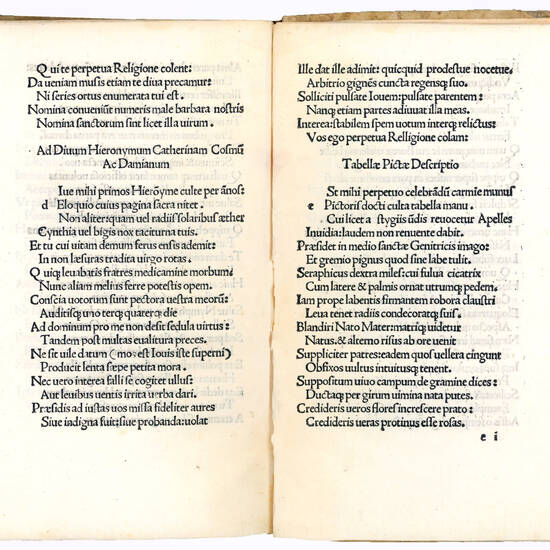 Qui te perpetua Religione colent:
Da ueniam musis etiam te diua precamur:
Ni series ortus enumerata tui est.
Nomina conueniũt numeris male barbara nostris
Nomina sanctorum sint licet illa uirum.
Ad Diuum Hieronymum Catherinam Cosmũ
Ac Damianum
Iue mihi primos Hierõyme culte per ãnos:
d Eloquio cuius pagina sacra nitet.
Non aliter quam uel radiis solaribus æther
Cynthia uel bigis nox tacitura tuis.
Et tu cui uitam demum ferus ensis ademit:
In non læsuras tradita uirgo rotas.
Quiq; leuabatis fratres medicamine morbum:
Nunc aliam melius ferre potestis opem.
Conscia uotorum sunt pectora uestra meorũ:
Auditisq; uno terq; quaterq; die
Ad dominum pro me non desit sedula uirtus:
Tandem post multas eualitura preces.
Ne sit uile datum (mos est Iouis iste superni)
Producit lenta sæpe petita mora.
Nec uero interea falli se cogitet ullus:
Aut leuibus uentis irrita uerba dari.
Præsidis ad iustas uos missa fideliter aures
Siue indigna fuit: siue probanda: uolat
Ille dat ille adimit: quicquid prodestue nocetue.
Arbitrio gignẽs cuncta regensq; suo.
Solliciti pulsate Iouem: pulsate parentem:
Nanq; etiam partes adiuuat illa meas.
Interea: stabilem spem uotum interq; relictus:
Vos ego perpetua Relligione colam:
Tabellæ Pictæ Descriptio
St mihi perpetuo celebrãdũ carmĩe munus
e Pictoris docti culta tabella manu.
Cui licet a stygiis ũdis reuocetur Apelles
Inuidia: laudem non renuente dabit.
Præsidet in medio sanctæ Genitricis imago:
Et gremio pignus quod sine labe tulit.
Seraphicus dextra miles: cui fulua cicatrix
Cum latere & palmis ornat utrumq; pedem.
Iam prope labentis firmantem robora claustri
Leua tenet radiis condecoratq; suis.
Blandiri Nato Mater matriq; uidetur
Natus. & alterno risus ab ore uenit
Suppliciter patres: eadem quos uellera cingunt
Obfixos uultus intuitusq; tenent.
Suppositum uiuo campum de gramine dices:
Ductaq; per girum uimina nata putes.
Credideris ueros flores increscere prato:
Credideris ueras protinus esse rosas.
e i